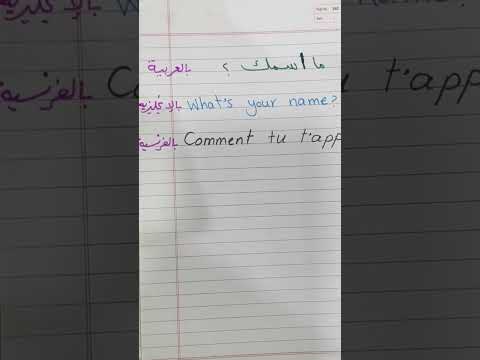 ما اسمك ؟ بالعربية
بالإنجليزية What's your name?
بالفرنسية Comment tu t'app